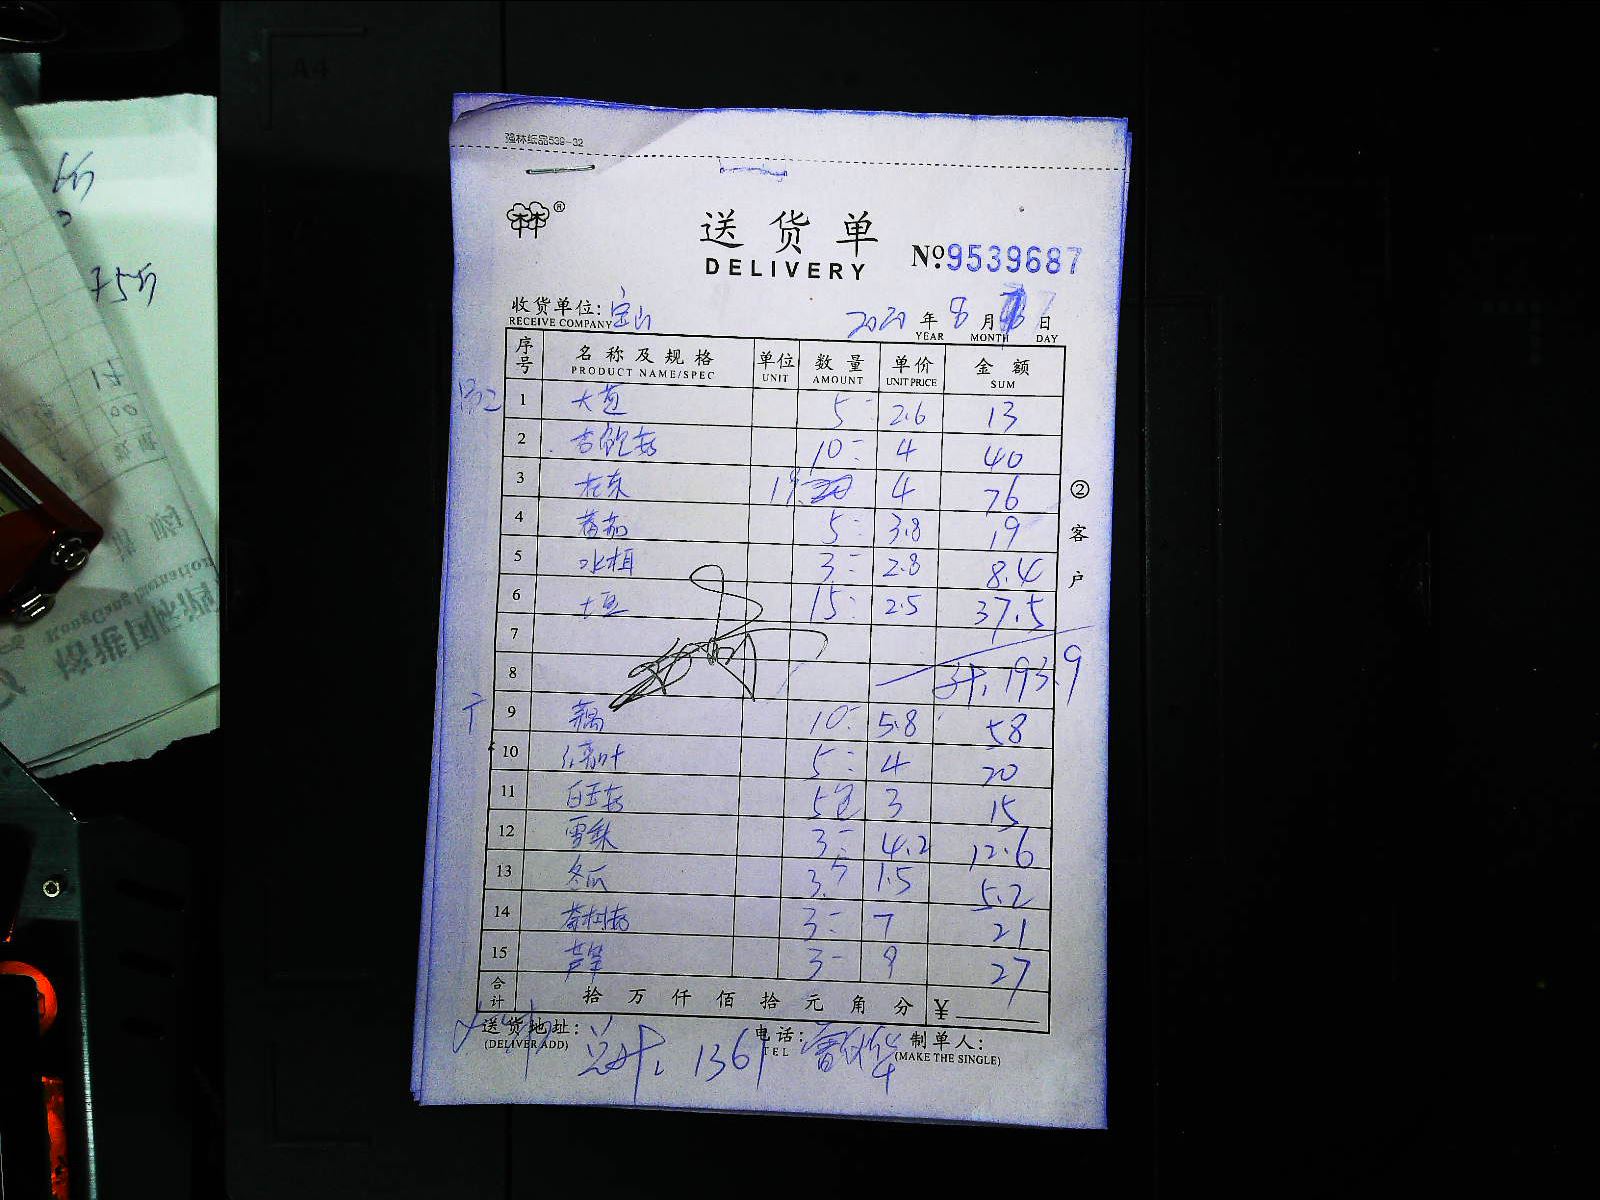 A4
强林纸品539-32
送货单
DELIVERY
№9539687
收货单位: 宝山
RECEIVE COMPANY
2020 年 8 月 日
YEAR MONTH DAY
序号 名称及规格 单位 数量 单价 金额
PRODUCT NAME/SPEC UNIT AMOUNT UNIT PRICE SUM
1 大葱 5 2.6 13
2 杏鲍菇 10 4 40
3 19 4 76
4 蕃茄 5 3.8 19
5 3 2.8 8.4
6 土豆 15 2.5 37.5
7
8 计. 193.9
9 藕 10 5.8 58
10 5 4 20
11 白玉菇 5包 3 15
12 雪梨 3 4.2 12.6
13 冬瓜 3.5 1.5 5.2
14 茶树菇 3 7 21
15 芦笋 3 9 27
合计 拾 万 仟 佰 拾 元 角 分 ¥
② 客户
送货地址: 电话: 制单人:
(DELIVER ADD) TEL (MAKE THE SINGLE)
总计: 1361